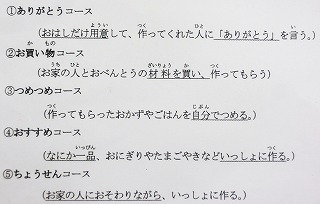 ①ありがとうコース
（おはしだけ用意して、作ってくれた人に「ありがとう」を言う。）
②お買い物コース
（お家の人とおべんとうの材料を買い、作ってもらう）
③つめつめコース
（作ってもらったおかずやごはんを自分でつめる。）
④おすすめコース
（なにか一品、おにぎりやたまごやきなどいっしょに作る。）
⑤ちょうせんコース
（お家の人におそわりながら、いっしょに作る。）